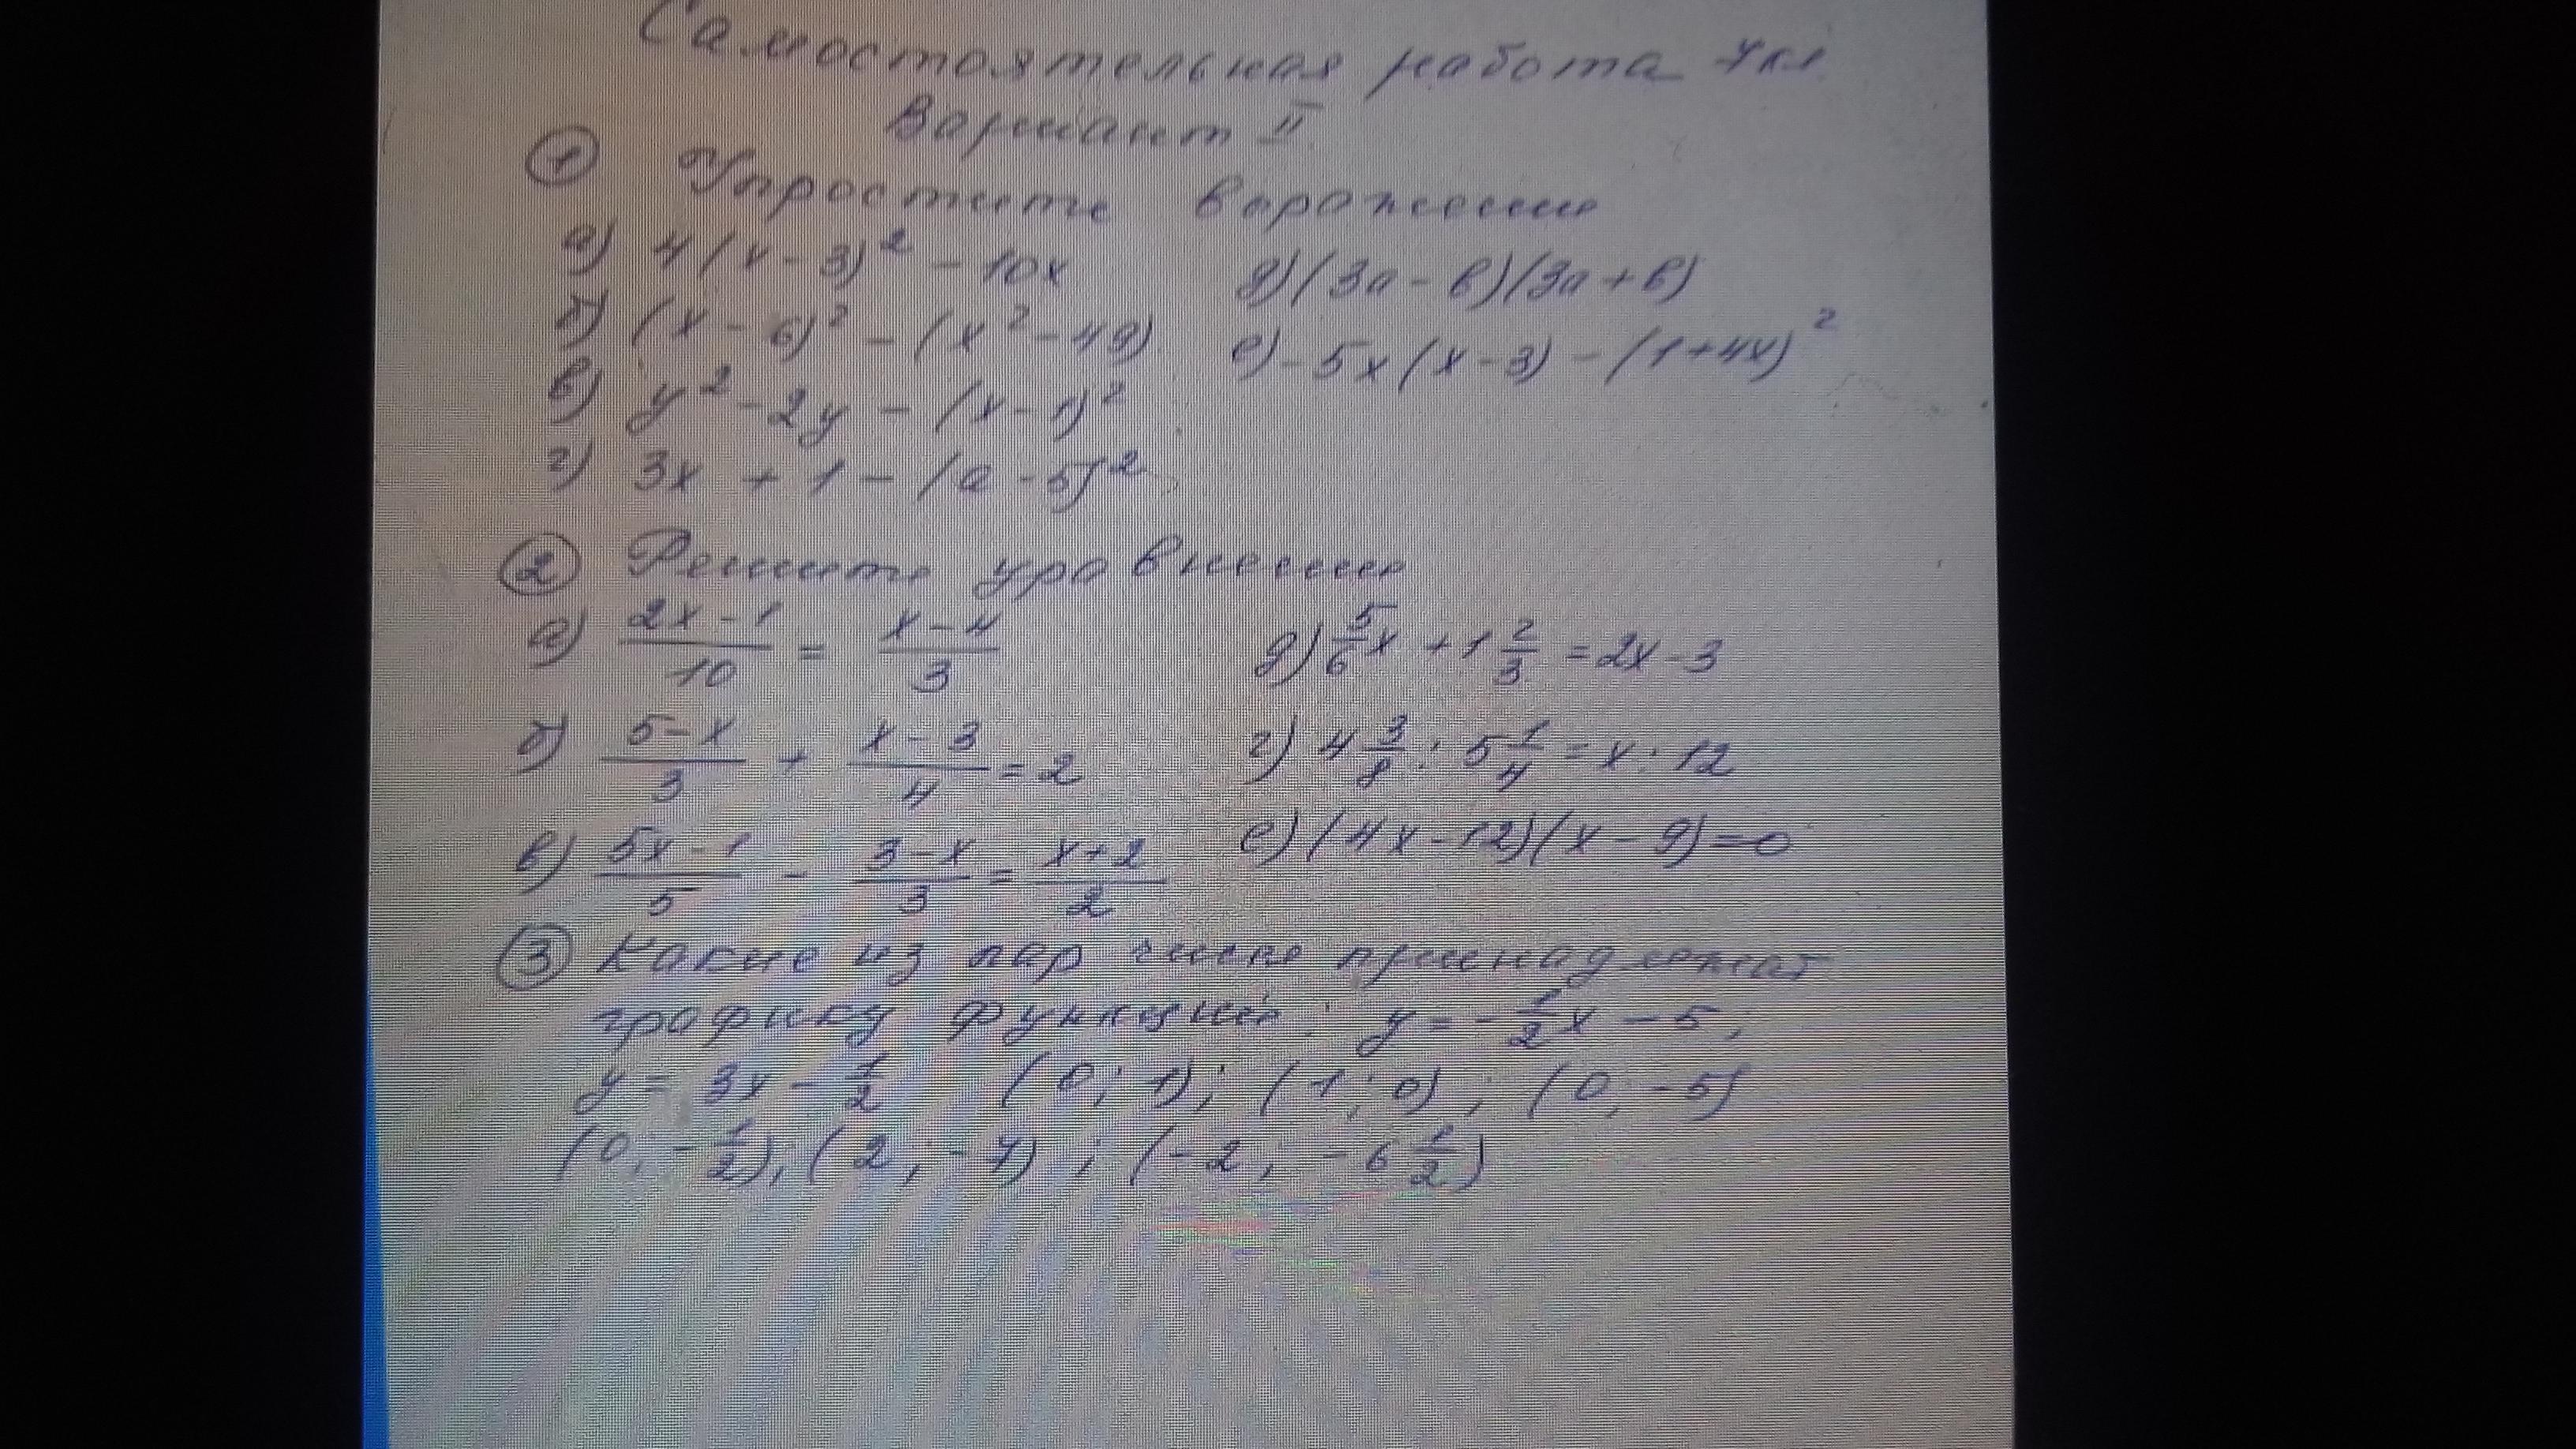 Самостоятельная работа 7кл
Вариант II
① Упростить выражение
а) 4(x-3)² - 10x
д) (3a-b)(3a+b)
б) (x-6)² - (x²-49)
е) -5x(x-3) - (1+4x)²
в) y² - 2y - (x-1)²
г) 3x + 1 - (a-5)²
② Решить уравнение
а) (2x-1)/10 = (x-4)/3
д) 5/6 x + 1 2/3 = 2x - 3
б) (5-x)/3 + (x-3)/4 = 2
г) 4 3/8 : 5 1/4 = x : 12
в) (5x-1)/5 - (3-x)/3 = (x+2)/2
е) (4x-12)(x-9)=0
③ Какие из пар чисел принадлежат
графику функции: y = -1/2 x - 5;
y = 3x - 1/2 (0; 1); (1; 0); (0; -5)
(0; -1/2); (2; -7); (-2; -6 1/2)